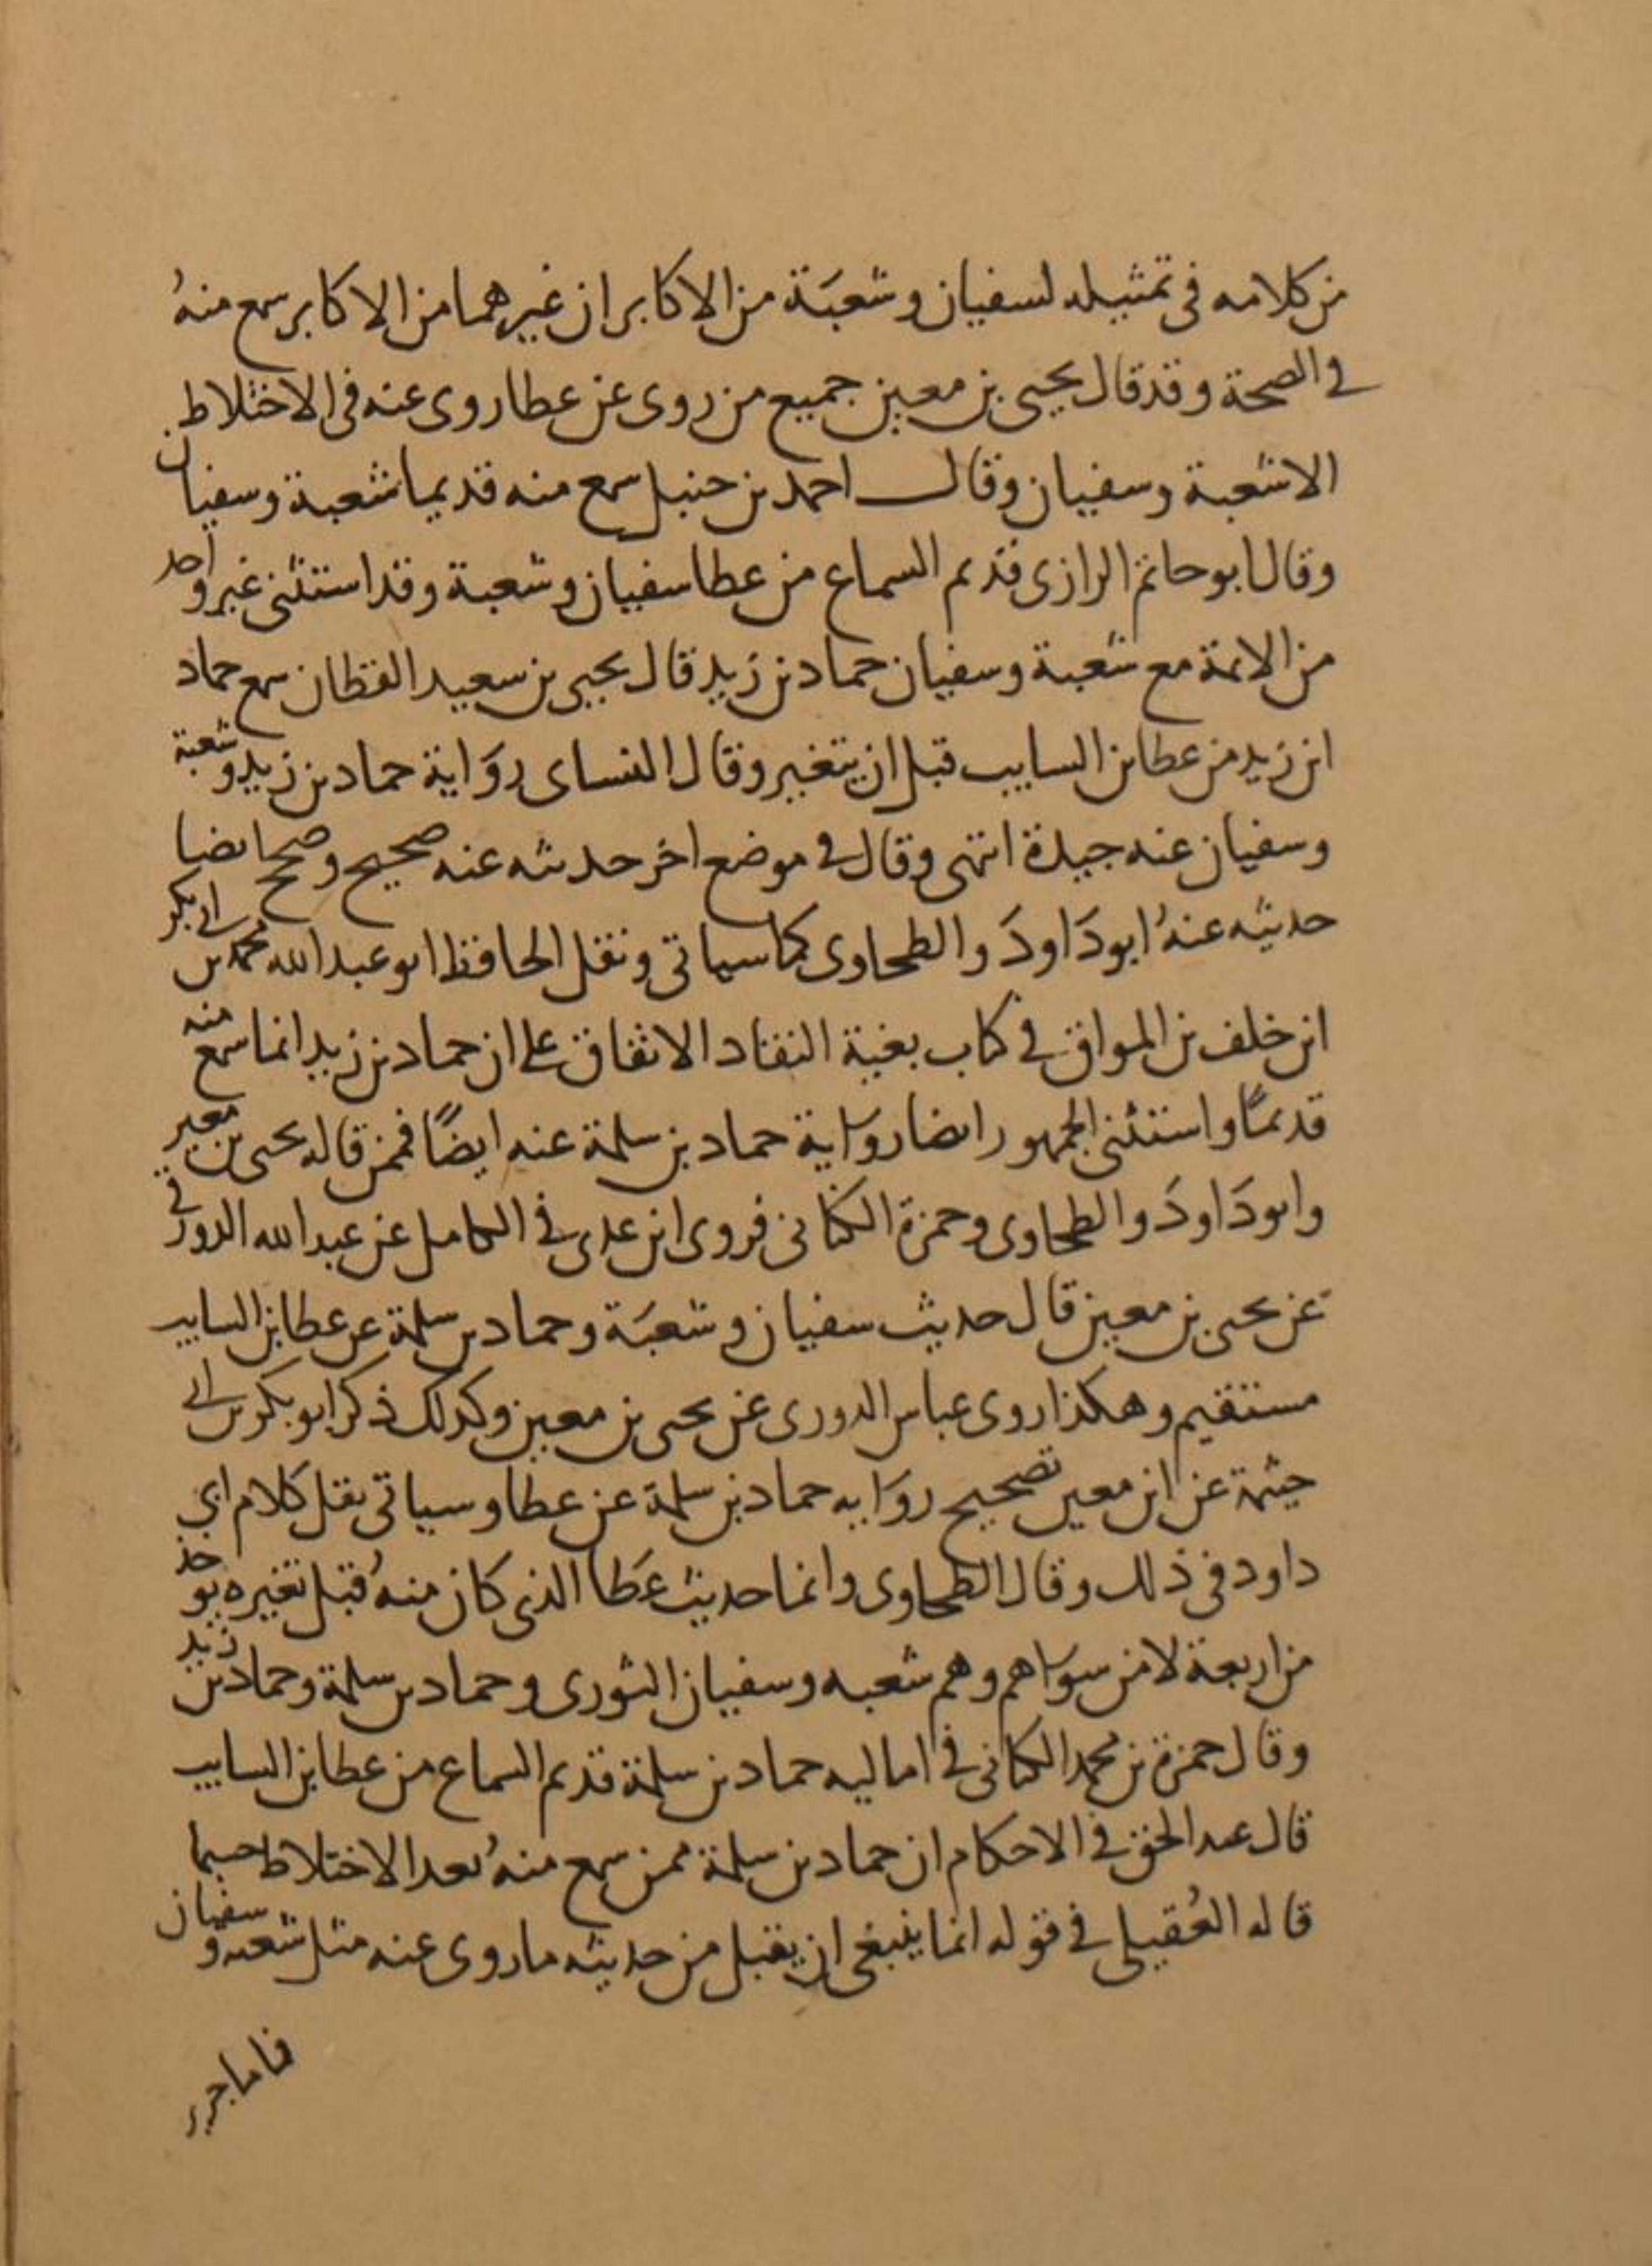 من كلامه فى تمثيله لسفيان وشعبَة من الاكابر ان غيرهما من الاكابر سمع منهُ
فى الصحة وقد قال يحيى بن معين جميع من روى عن عطا روى عنه فى الاختلاط
الا شعبة وسفيان وقال احمد بن حنبل سمع منه قديما شعبة وسفيان
وقال ابو حاتم الرازى قديم السماع من عطا سفيان وشعبة وقد استثنى غير واحد
من الائمة مع شعبة وسفيان حماد بن زيد قال يحيى بن سعيد القطان سمع حماد
ابن زيد من عطا بن السايب قبل ان يتغير وقال النساى روَاية حماد بن زيد وشعبة
وسفيان عنه جيدة انتهى وقال فى موضع اخر حديثه عنه صحيح وصحح ايضا
حديثه عنهُ ابو دَاودَ والطحاوى كما سياتى ونقل الحافظ ابو عبد الله محمد بن ابى بكر
ابن خلف بن المواق فى كتاب بغية النقاد الاتفاق على ان حماد بن زيد انما سمع منه
قديمًا واستثنى الجمهور ايضا روَاية حماد بن سلمة عنه ايضًا فممن قاله يحيى بن معين
وابو دَاودَ والطحاوى وحمزة الكنانى فروى ابن عدى فى الكامل عن عبد الله الدورقى
عن يحيى بن معين قال حديث سفيان وشعبَة وحماد بن سلمة عن عطا بن السايب
مستقيم وهكذا روى عباس الدورى عن يحيى بن معين وكذلك ذكر ابو بكر بن ابى
خيثمة عن ابن معين تصحيح روَاية حماد بن سلمة عن عطا وسياتى نقل كلام ابى
داود فى ذلك وقال الطحاوى وانما حديث عَطا الذى كان منهُ قبل تغيره يوخذ
من اربعة لا من سوَاهم وهم شعبه وسفيان الثورى وحماد بن سلمة وحماد بن زيد
وقال حمزة بن محمد الكنانى فى اماليه حماد بن سلمة قديم السماع من عطا بن السايب
قال عبد الحق فى الاحكام ان حماد بن سلمة ممن سمع منهُ بعد الاختلاط حسبما
قاله العُقيلى فى قوله انما ينبغى ان يقبل من حديثه ما روى عنه مثل شعبه وسفيان
فاما جرير